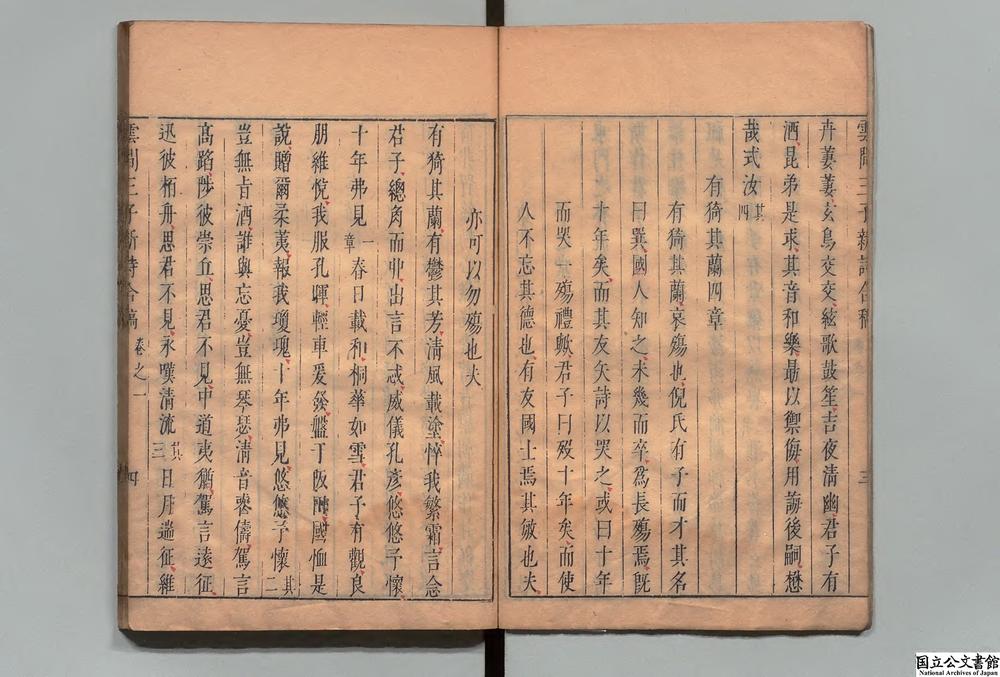 雲間三子新詩合稿 三
卉萋萋玄鳥交交絃歌鼓笙吉夜清幽君子有
酒昆弟是求其音和樂最以禦侮用誨後嗣懋
哉式汝其四
有猗其蘭四章
有猗其蘭哀殤也倪氏有子而才其名
曰巽國人知之未幾而卒爲長殤焉旣
十年矣而其友矢詩以哭之或曰十年
而哭一殤禮歟君子曰歿十年矣而使
人不忘其德也有友國士焉其傚也夫
亦可以勿殤也夫
有猗其蘭有鬱其芳淸風載塗悴我繁霜言念
君子總角而丱出言不忒威儀孔彦悠悠予懷
十年弗見一章春日載和桐華如雪君子有觀良
朋維悅我服孔暉輕車爰發艦于阪國恤是
說贈爾柔荑報我瓊瑰十年弗見悠悠予懷其二
豈無旨酒誰與忘憂豈無琴瑟清音儔駕言
高蹈陟彼崇丘思君不見中道夷猶駕言遠征
迅彼栢舟思君不見永嘆清流其三日月遄征維
雲間三子新詩合稿 卷之一 四
国立公文書館
National Archives of Japan